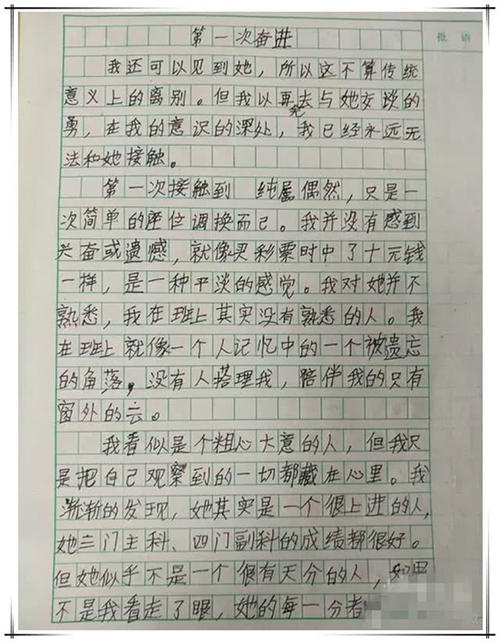 批语
第一次奋进
我还可以见到她，所以这不算传统
意义上的离别。但我以再去与她交谈的
勇，在我的意识的深处，我已经永远无
法和她接触。
第一次接触到 纯属偶然，只是一
次简单的座位调换而已。我并没有感到
兴奋或遗憾，就像买彩票时中了十元钱
一样，是一种平淡的感觉。我对她并不
熟悉，我在班上其实没有熟悉的人。我
在班上就像一个人记忆中的一个被遗忘
的角落，没有人搭理我，陪伴我的只有
窗外的云。
我看似是个粗心大意的人，但我只
是把自己观察到的一切都藏在心里。我
渐渐的发现，她其实是一个很上进的人，
她三门主科、四门副科的成绩都很好。
但她似乎不是一个很有天分的人，如果
不是我看走了眼，她的每一分者